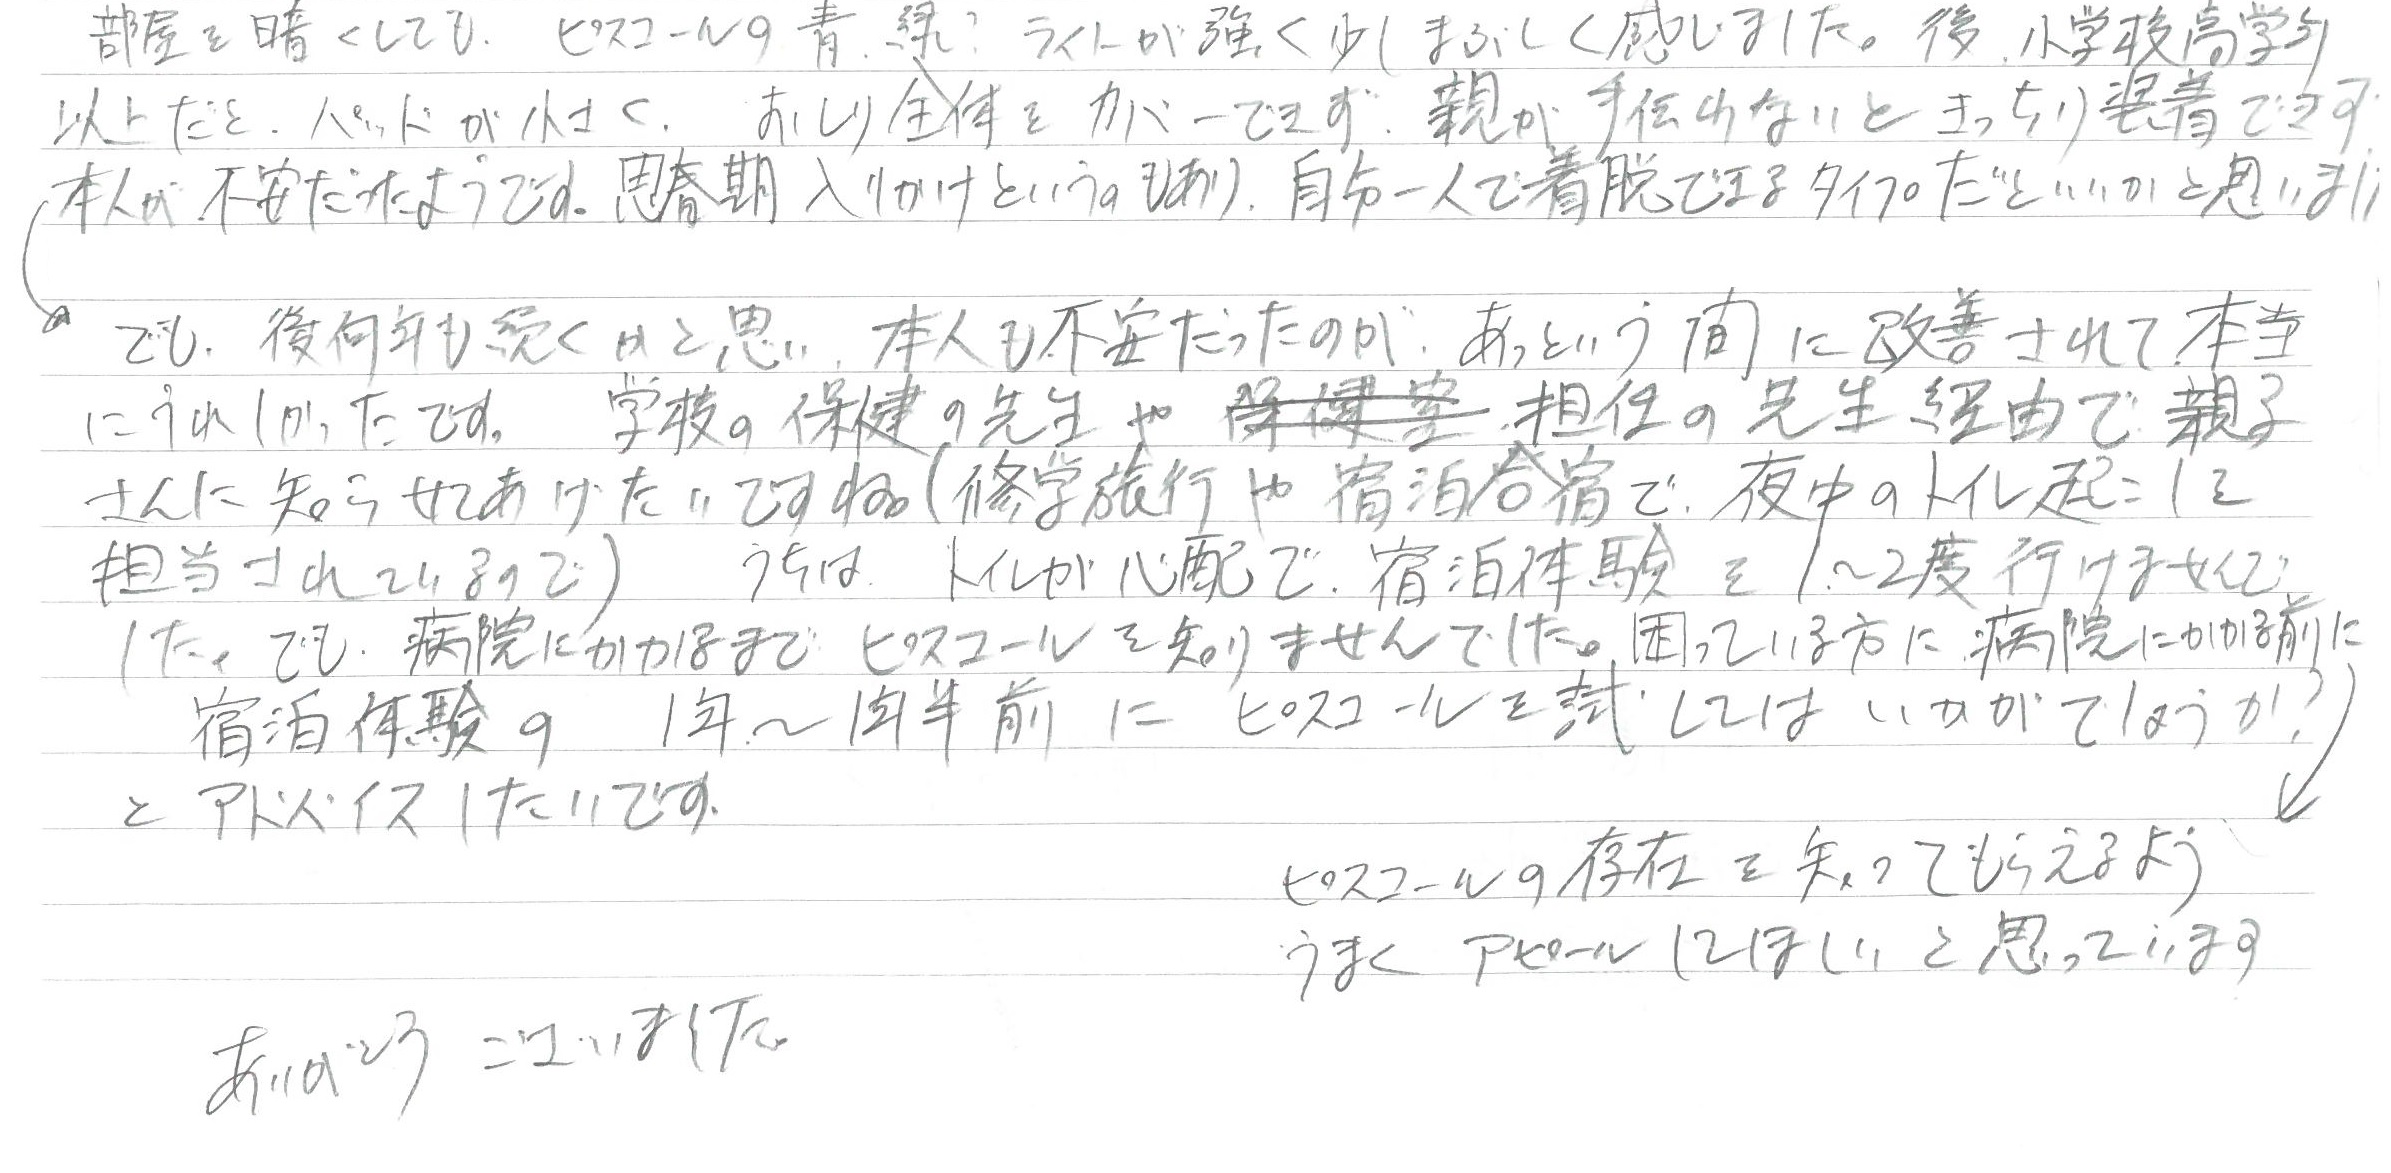 部屋を暗くしても、ピスコールの青、緑?ライトが強く少しまぶしく感じました。後、小学校高学年
以上だと、パッドが小さく、おしり全体をカバーできず、親が手伝わないときっちり装着できず
本人が不安だったようです。思春期入りかけというのもあり、自分一人で着脱できるタイプだといいかと思いまし
でも、後何年も続くかと思い、本人も不安だったのが、あっという間に改善されて本当
にうれしかったです。学校の保健の先生や保健室担任の先生経由で親子
さんに知らせてあげたいですね。(修学旅行や宿泊合宿で、夜中のトイレ起こしを
担当されているので) うちは、トイレが心配で、宿泊体験を1~2度行けませんで
した。でも、病院にかかるまでピスコールを知りませんでした。困っている方に病院にかかる前に
宿泊体験の1年~1年半前にピスコールを試してはいかがでしょうか?
とアドバイスしたいです。
ピスコールの存在を知ってもらえるよう
うまくアピールしてほしいと思っています
ありがとうございました。